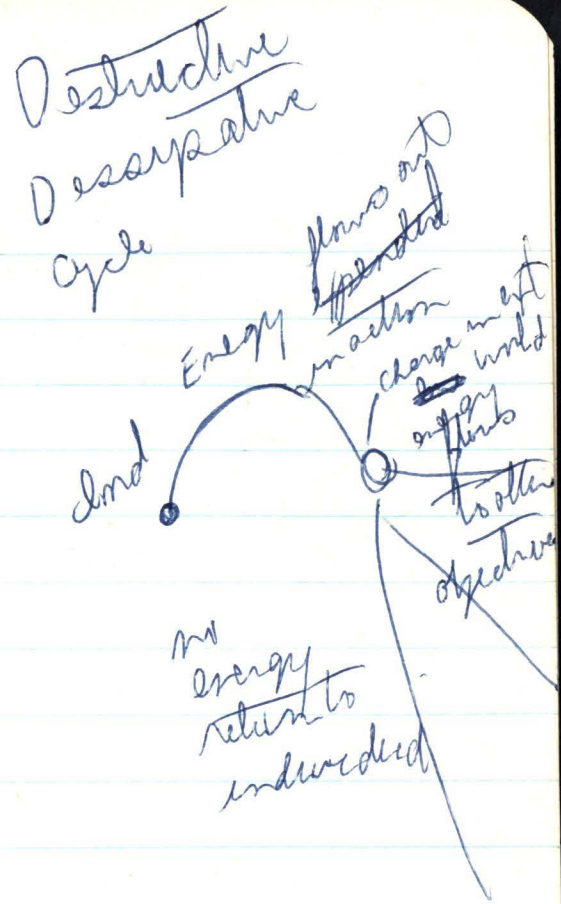 Destructive
Dessipative
Cycle
Energy flows out
expended
in action
change in ext
world
energy
flows
to other
objectives
Imd
no
energy
return to
individual